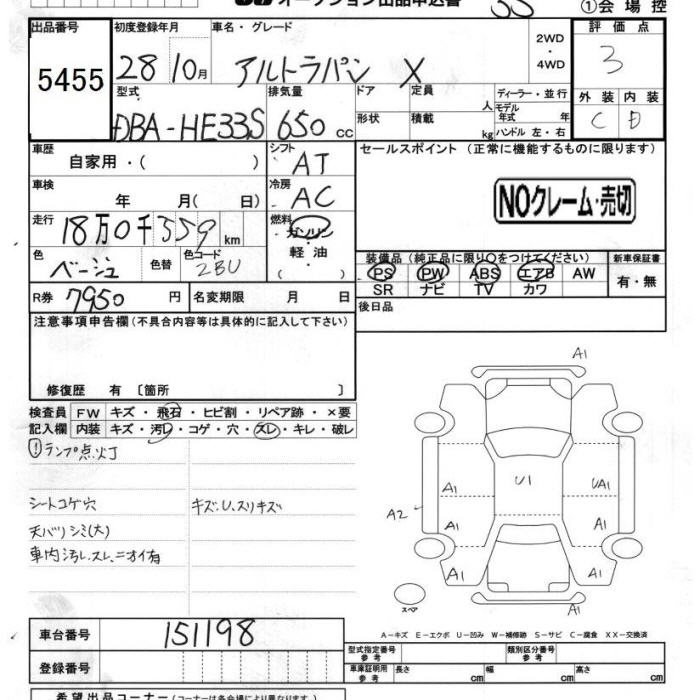 オークション出品申込書 35 ①会場控
出品番号 初度登録年月 車名・グレード 評価点
5455 28 10月 アルトラパン X 2WD・4WD 3
型式 排気量 ドア 定員 人 ディーラー・並行 外装 内装
DBA-HE33S 650 cc 形状 積載 kg モデル年式 年 ハンドル 左・右 C D
車歴 自家用・( ) シフト AT セールスポイント (正常に機能するものに限ります)
車検 年 月( 日) 冷房 AC NOクレーム・売切
走行 18万0千359km 燃料 ガソリン
色 ベージュ 色替 色コード 2BU 軽油 ( ) 装備品 (純正品に限り〇をつけてください) 新車保証書
PS PW ABS エアB AW 有・無
SR ナビ TV カワ
R券 7950 円 名変期限 月 日 後日品
注意事項申告欄 (不具合内容等は具体的に記入して下さい)
修復歴 有 〔箇所 〕
検査員 FW キズ・飛石・ヒビ割・リペア跡・×要
記入欄 内装 キズ・汚レ・コゲ・穴・スレ・キレ・破レ
! ランプ点灯
シートコゲ穴 キズ、U、スリキズ
天バリシミ(大)
車内汚レ、スレ、ニオイ有
A1
U1
A1 UA1
A2 A1 A1
A1 A1
スペア A1
A-キズ E-エクボ U-凹み W-補修跡 S-サビ C-腐食 XX-交換済
車台番号 151198
型式指定番号 参考 類別区分番号 参考
登録番号 車庫証明用 参考 長さ cm 幅 cm 高さ cm
希望出品コーナー (コーナーは各会場により異なります)